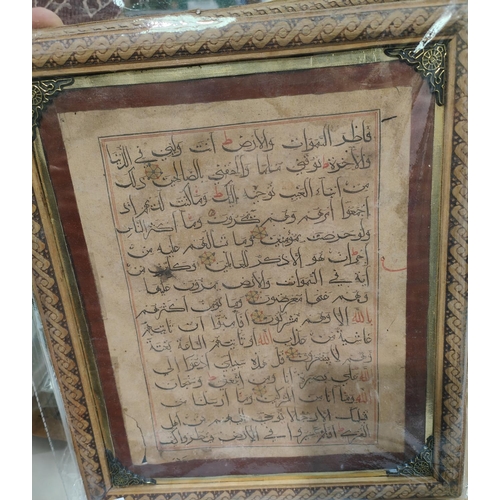 فاطر السموات والارض انت وليي في الدنيا
والاخرة توفني مسلما والحقني بالصالحين ذلك
من انباء الغيب نوحيه اليك وما كنت لديهم اذ
اجمعوا امرهم وهم يمكرون وما اكثر الناس
ولو حرصت بمؤمنين وما تسالهم عليه من
اجر ان هو الا ذكر للعالمين وكاين من
اية في السموات والارض يمرون عليها
وهم عنها معرضون وما يؤمن اكثرهم
بالله الا وهم مشركون افامنوا ان تاتيهم
غاشية من عذاب الله او تاتيهم الساعة بغتة
وهم لا يشعرون قل هذه سبيلي ادعوا الى
الله على بصيرة انا ومن اتبعني وسبحان
الله وما انا من المشركين وما ارسلنا من
قبلك الا رجالا نوحي اليهم من اهل
القرى افلم يسيروا في الارض فينظروا كيف